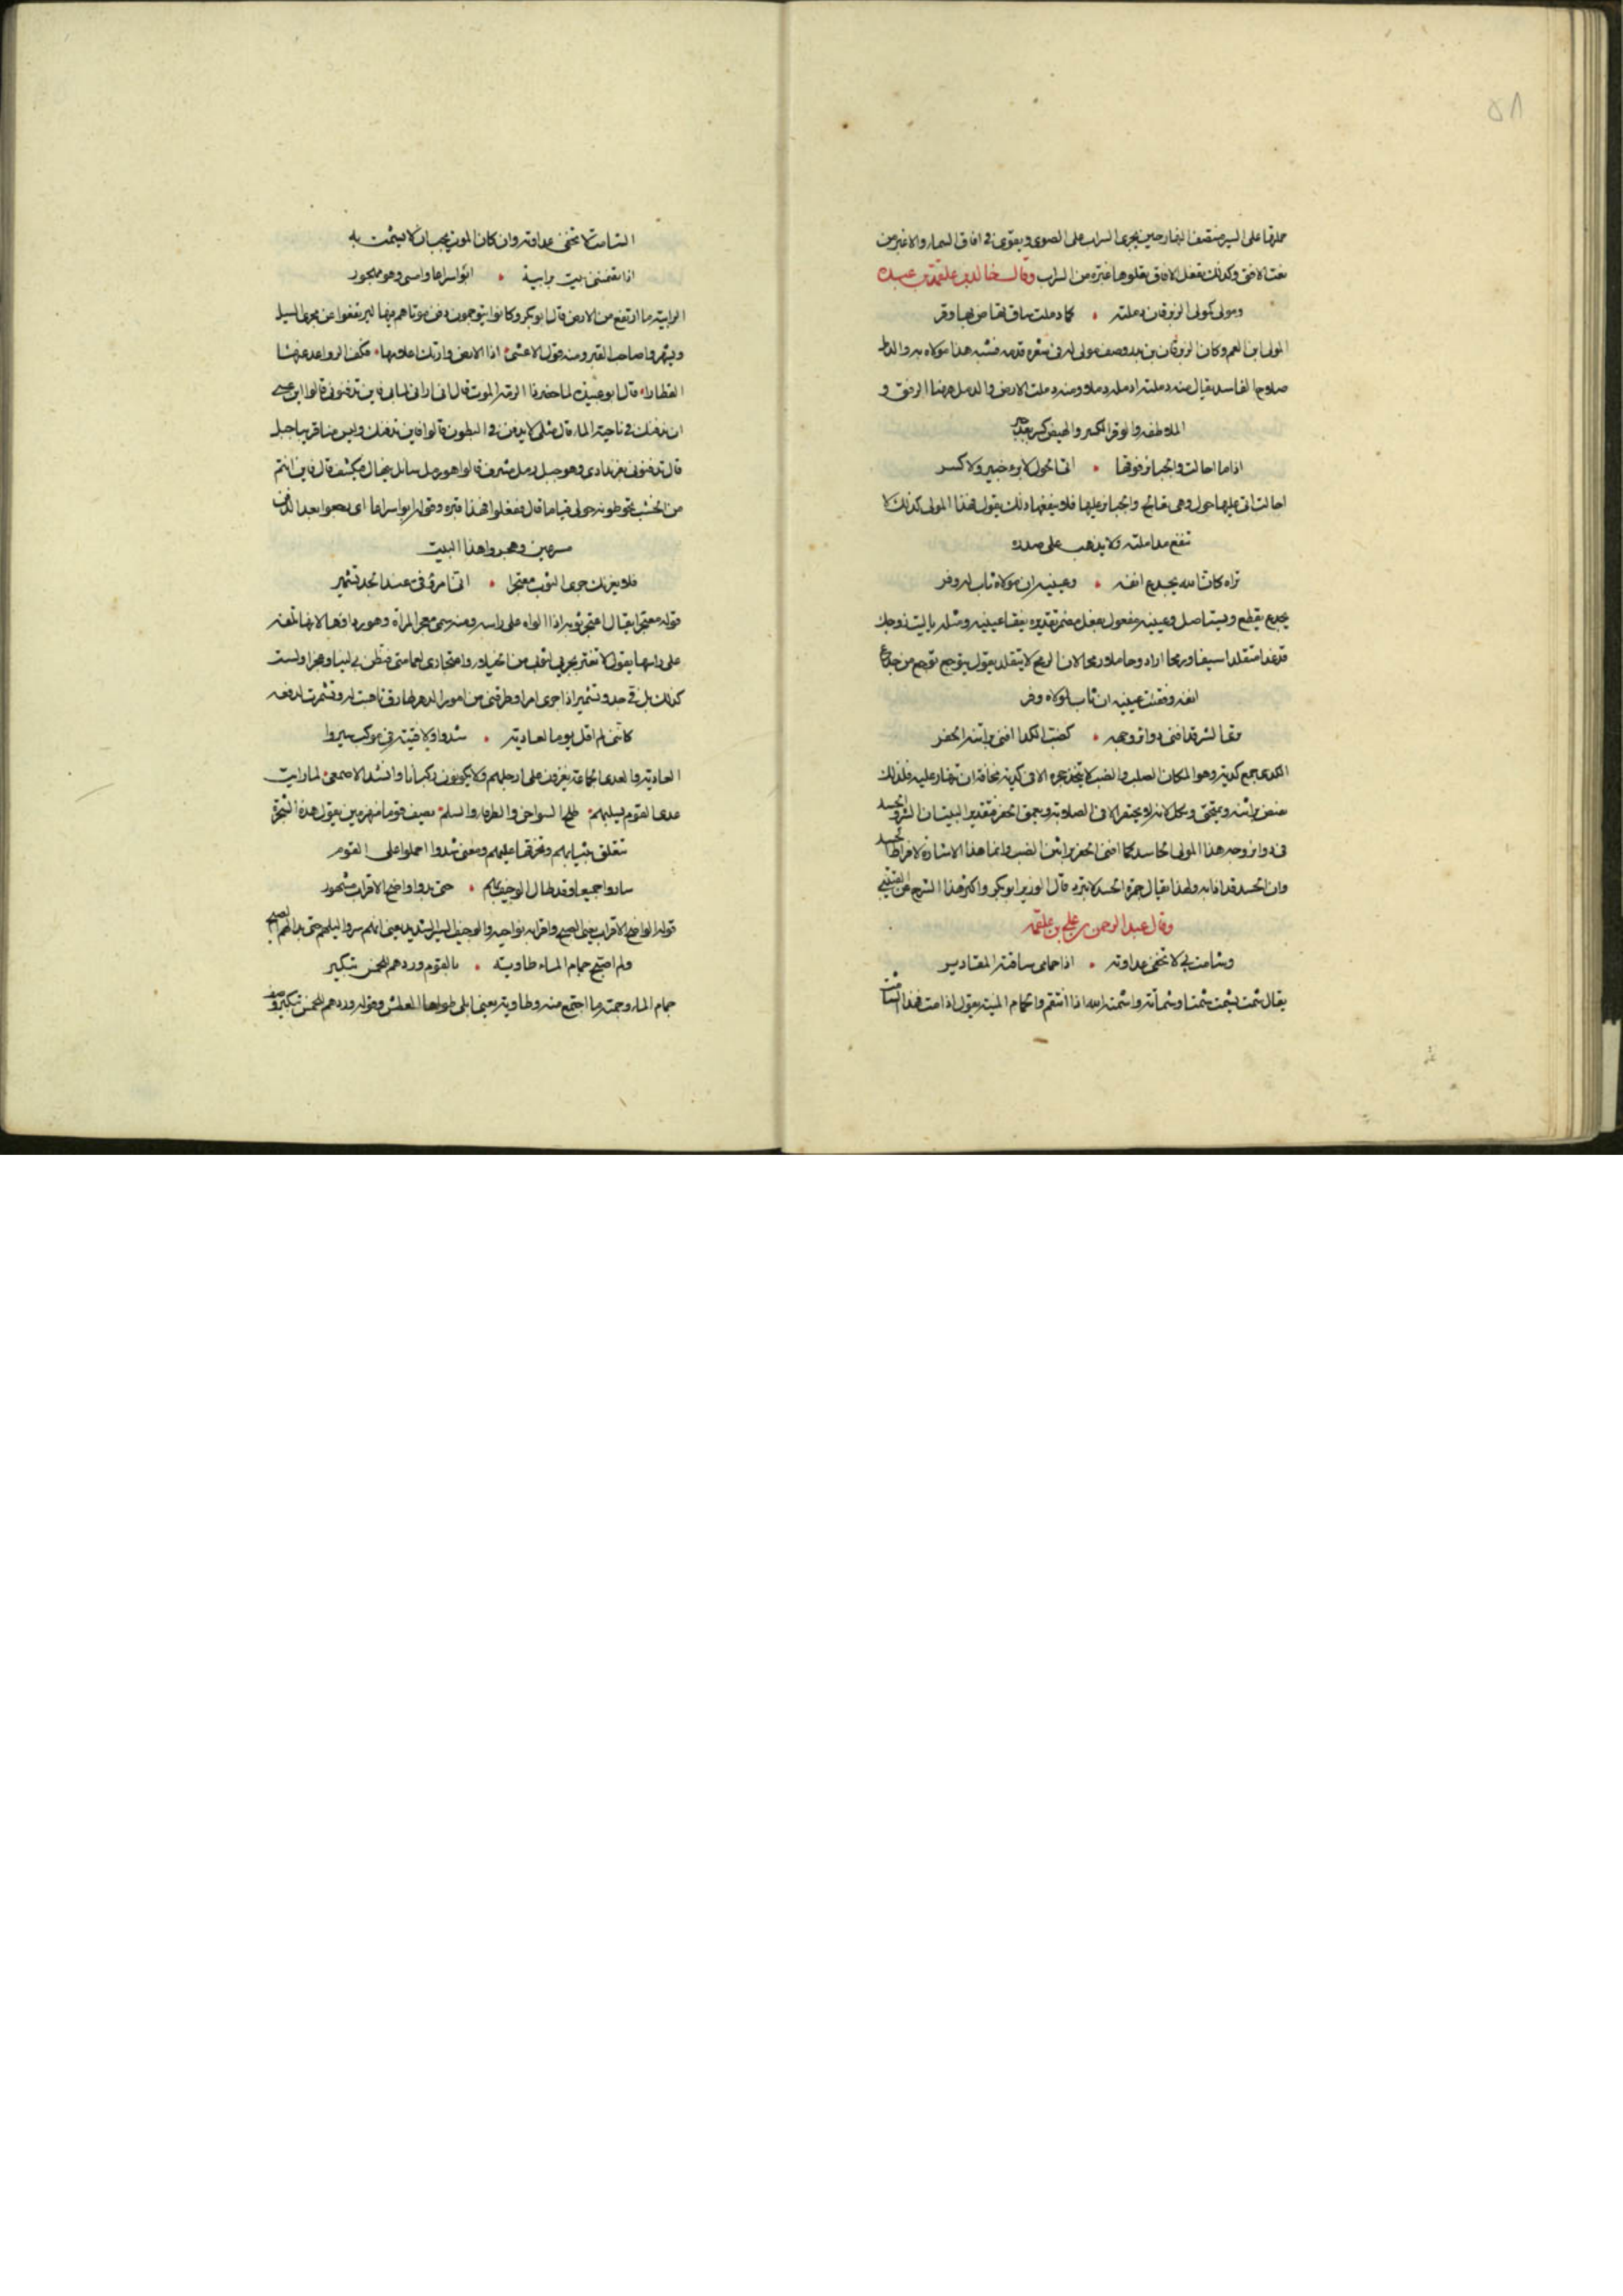 ٥٨
حملتها على السير منتصف النهار حين يجرى السراب على الصوى ويقوى في افاق السماء والاغبر من
نعت الافق وكذلك تفعل الافاق يعلوها غبرة من السراب وقال خالد بن علقمة بن عبدة
ومولى كمولى الزبرقان دملته • كما دملت ساق تهاض بها وقر
المولى ابن العم وكان الزبرقان بن بدر وصف مولى له في شعره قدمه فشبه هذا مولاه به والدمل
صلاح الفاسد يقال منه دملته ادمله دملا ومنه دملت الارض والدمل هاهنا الرفق و
الملاطفه والوقر الكسر والهيض كسر بعد جبر
اذا ما احالت والجبائر فوقها • اتى الحول لا برء جبير ولا كسر
احالت اتى عليها حول وهي تعالج والجبائر عليها فلا ينفعها ذلك يقول هذا المولى كذلك لا
تنفع مداملته ولا يذهب على صدره
تراه كان الله يجدع انفه • وعينيه ان مولاه ثاب له وفر
يجدع يقطع ويستاصل وعينيه مفعول بفعل مضمر تقديره يفقا عينيه ومثله ياليت زوجك
قد غدا متقلدا سيفا ورمحا اراد وحاملا رمحا لان الرمح لا يتقلد يقول يتوجع توجع من جدع
انفه وفقئت عينيه ان ثاب لمولاه وفر
ترى الشر قد افنى دوائر وجهه • كضب الكدا افنى براثنه الحفر
الكدى جمع كدية وهو المكان الصلب والضب لا يتخذ جحره الا في كدية مخافة ان ينهار عليه فلذلك
في دوائر وجه هذا المولى الحاسد كما افنى الحفر براثن الضب وانما هذا الاشارة لافراط الحسد
وان الحسد قد اذابه ولهذا يقال جمرة الحسد لا تبرد قال الوزير ابو بكر واكثر هذا الشرح عن القتيبي
وقال عبد الرحمن بن علي بن علقمه
وشامت بي لا تخفى عداوته • اذا حمامى ساقته المقادير
يقال شمت يشمت شمتا وشماتة واشمته الله اذا انتقم والحمام المنية يقول اذا مت فهذا الشامت
الشامت لا تخفى عداوته وان كان الموت يجب ان لا يشمت به
اذا تضمننى بيت برابية • ابوا سراعا وامسى وهو مهجور
الرابية ما ارتفع من الارض قال ابو بكر وكانوا يتوخون دفن موتاهم فيها ليرتفعوا عن مجرى السيل
ويشهروا صاحب القبر ومنه قول الاعشى • اذا الارض وارتك اعلامها • فكف الرواعد عنها
القطارا • قال ابو عبيدة لما حضر ذا الرمة الموت قال انى ارانى لمابى فاين تدفنونى قالوا اين عسى
ان ندفنك في ناحية الماء قال مثلى لا يدفن في البطون قالوا فاين ندفنك وليس منا قريبا جبل
من الخشب تحوطونه حولى قياما قال ففعلوا فهذا قبره وقوله ابوا سراعا اى رجعوا بعد الدفن
مسرعين وهجروا هذا البيت
فلا يغرنك جرى الثوب معتجرا • انى امرؤ في عند الجد تشمير
قوله معتجرا يقال اعتجر ثوبه اذا الواه على راسه ومنه سمى معجر المراة وهو رداؤها لانها تلفه
على راسها يقول لا تغتر بجرى الثوب من الخيلاء واعتجارى لعمامتى فتظن بى لينا وعجزا ولست
كذلك بل في جد وتشمير اذا جرى امر او طرقنى من امور الدهر طارق تاهبت له وتشمرت لدفعه
كاننى لم اقل يوما لعادية • شدوا ولا فتية في موكب سيروا
العادية والعدى الجماعة يغزون على ارجلهم ولا يكونون ركبانا وانشد الاصمعى • لما رايت
عدى القوم يسلبهم • طلح الشواجن والطرفاء والسلم • يصف قوما منهزمين يقول هذه الشجرة
تتعلق بثيابهم وتخرقها عليهم ومعنى شدوا احملوا على القوم
ساروا جميعا وقد طال الوجيف بهم • حتى بدا واضح الاقراب مشهور
قوله الواضح الاقراب يعنى الصبح واقرابه نواحيه والوجيف السير الشديد يعنى انهم سروا ليلهم حتى بدا لهم الصبح
ولم اصبح جمام الماء طاوية • بالقوم وردهم للخمس تبكير
جمام الماء وجمته ما اجتمع منه وطاوية يعنى ابلى طواها العطش وقوله وردهم للخمس تبكير وصف